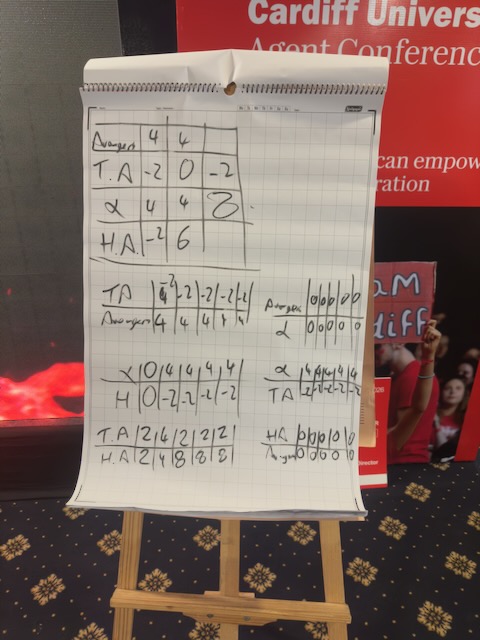 Cardiff Univers
Agent Conferenc
can empow
ration
AM
diff
Director
Avengers 4 4
T.A -2 0 -2
α 4 4 8
H.A. -2 6
TA -2 -2 -2 -2 -2
Avengers 4 4 4 4 4
Avengers 0 0 0 0 0
α 0 0 0 0 0
α 0 4 4 4 4
H 0 -2 -2 -2 -2
α 4 4 4 4 4
TA -2 -2 -2 -2 -2
T.A 2 4 2 2 2
H.A. 2 4 8 8 8
HA 0 0 0 0 0
Avengers 0 0 0 0 0